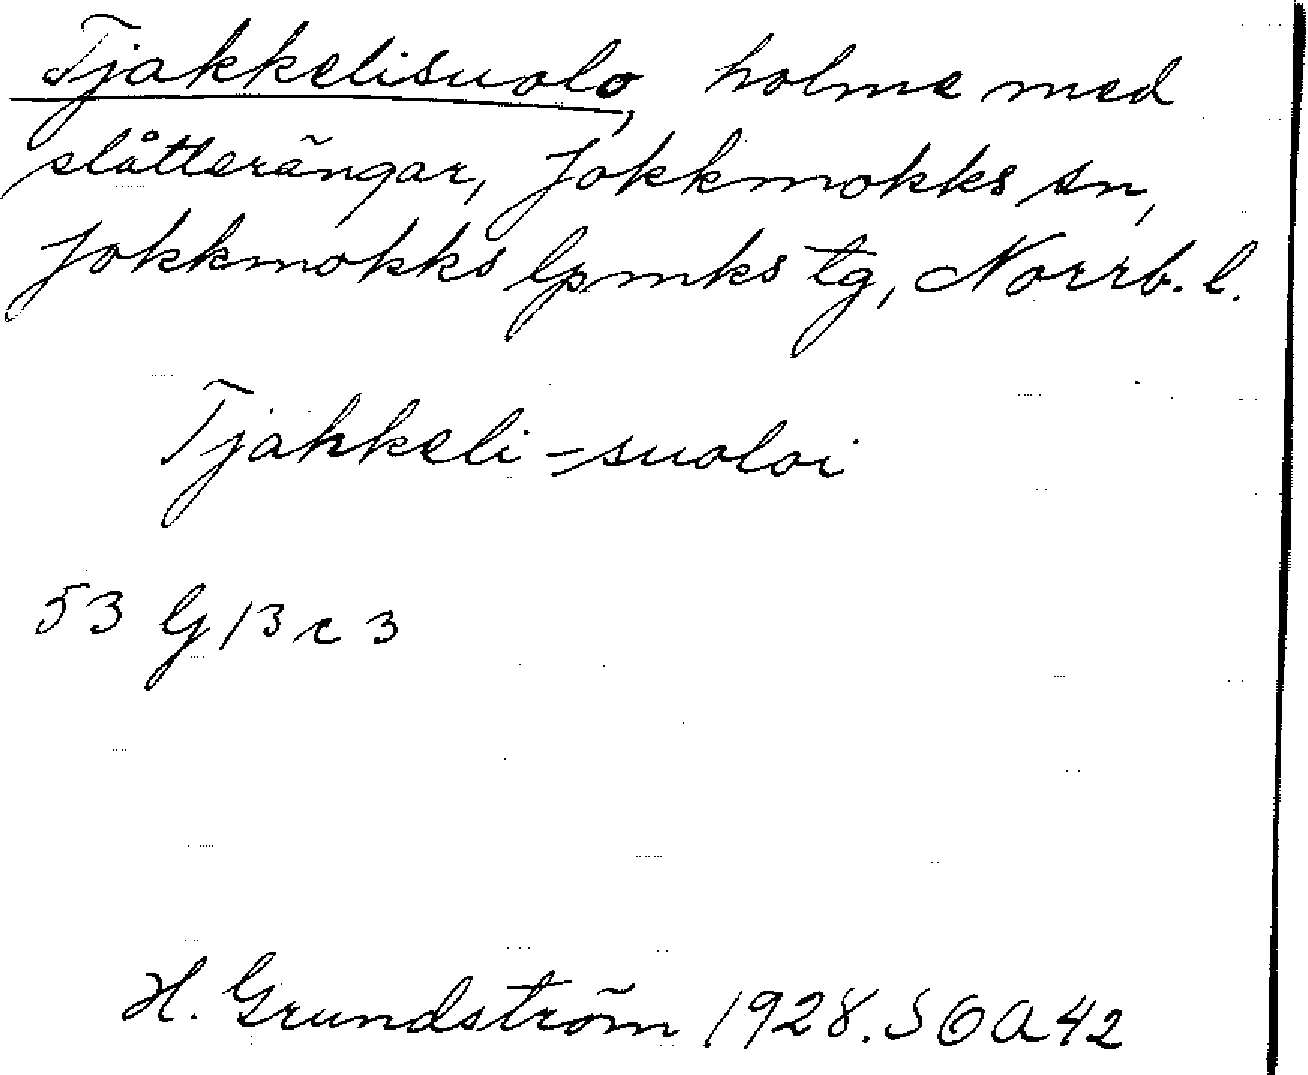 Tjakkelisuolo, holme med
slåtterängar, Jokkmokks sn,
Jokkmokks lpmks tg, Norrb. l.
Tjahkeli-suoloi
53 G 13 c 3
H. Grundström 1928. SOA 42